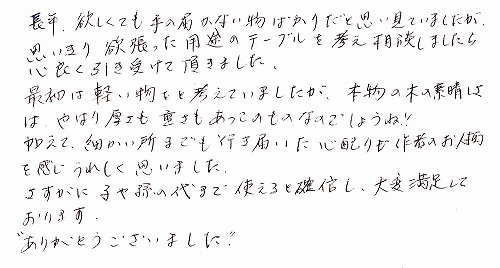 長年、欲しくても手の届かない物ばかりだと思い見ていましたが、
思いきり欲張った用途のテーブルを考え相談しましたら
心良く引き受けて頂きました。
最初は軽い物をと考えていましたが、本物の木の素晴しさ
は、やはり厚さも重さもあってのものなのでしょうね!!
加えて、細かい所までも行き届いた心配りが作者のお人柄
を感じうれしく思いました。
さすがに子や孫の代まで使えると確信し、大変満足して
おります。
"ありがとうございました"